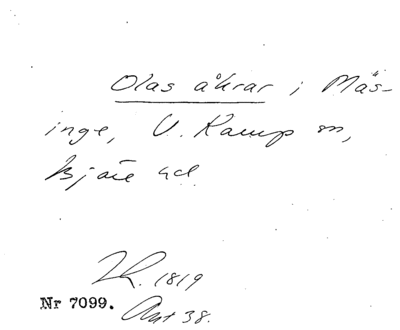 Olas åkrar i Mäs-
inge, V. Karup sn,
Bjäre hd
LR. 1819
Nr 7099. Akt 38.